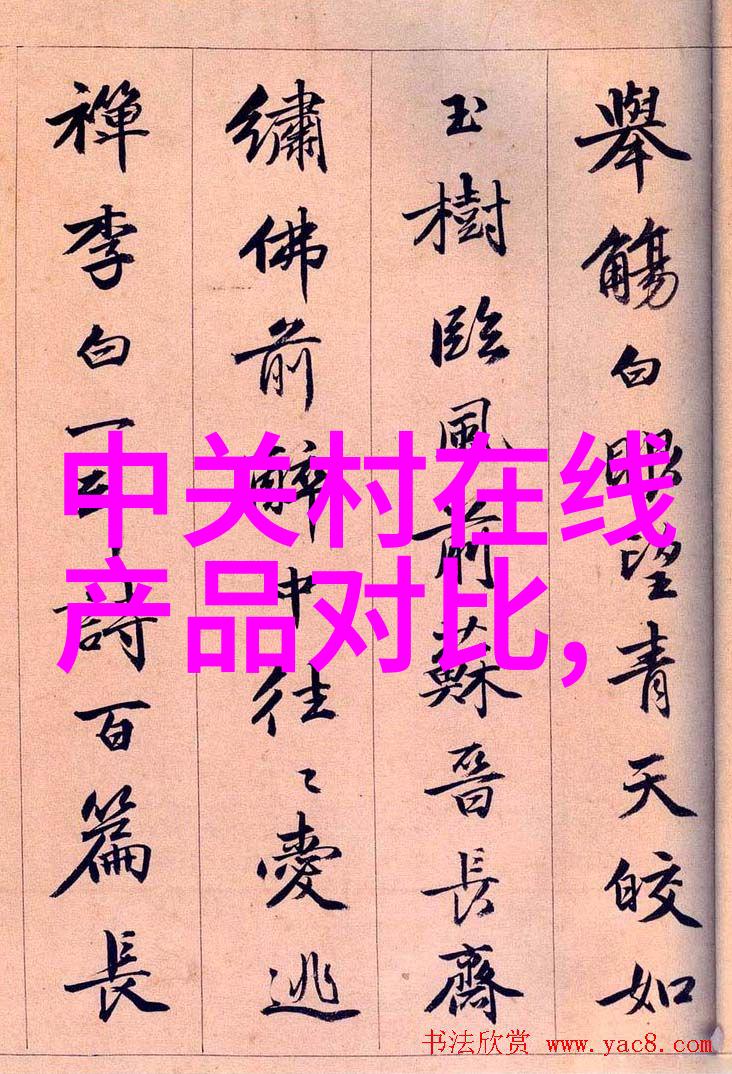 舉觴白眼望青天皎如
玉樹臨風前蘇晉長齋
繡佛前醉中往々愛逃
禪李白一斗詩百篇長
中关村在线
产品对比,
书法欣赏 www.yac8.com